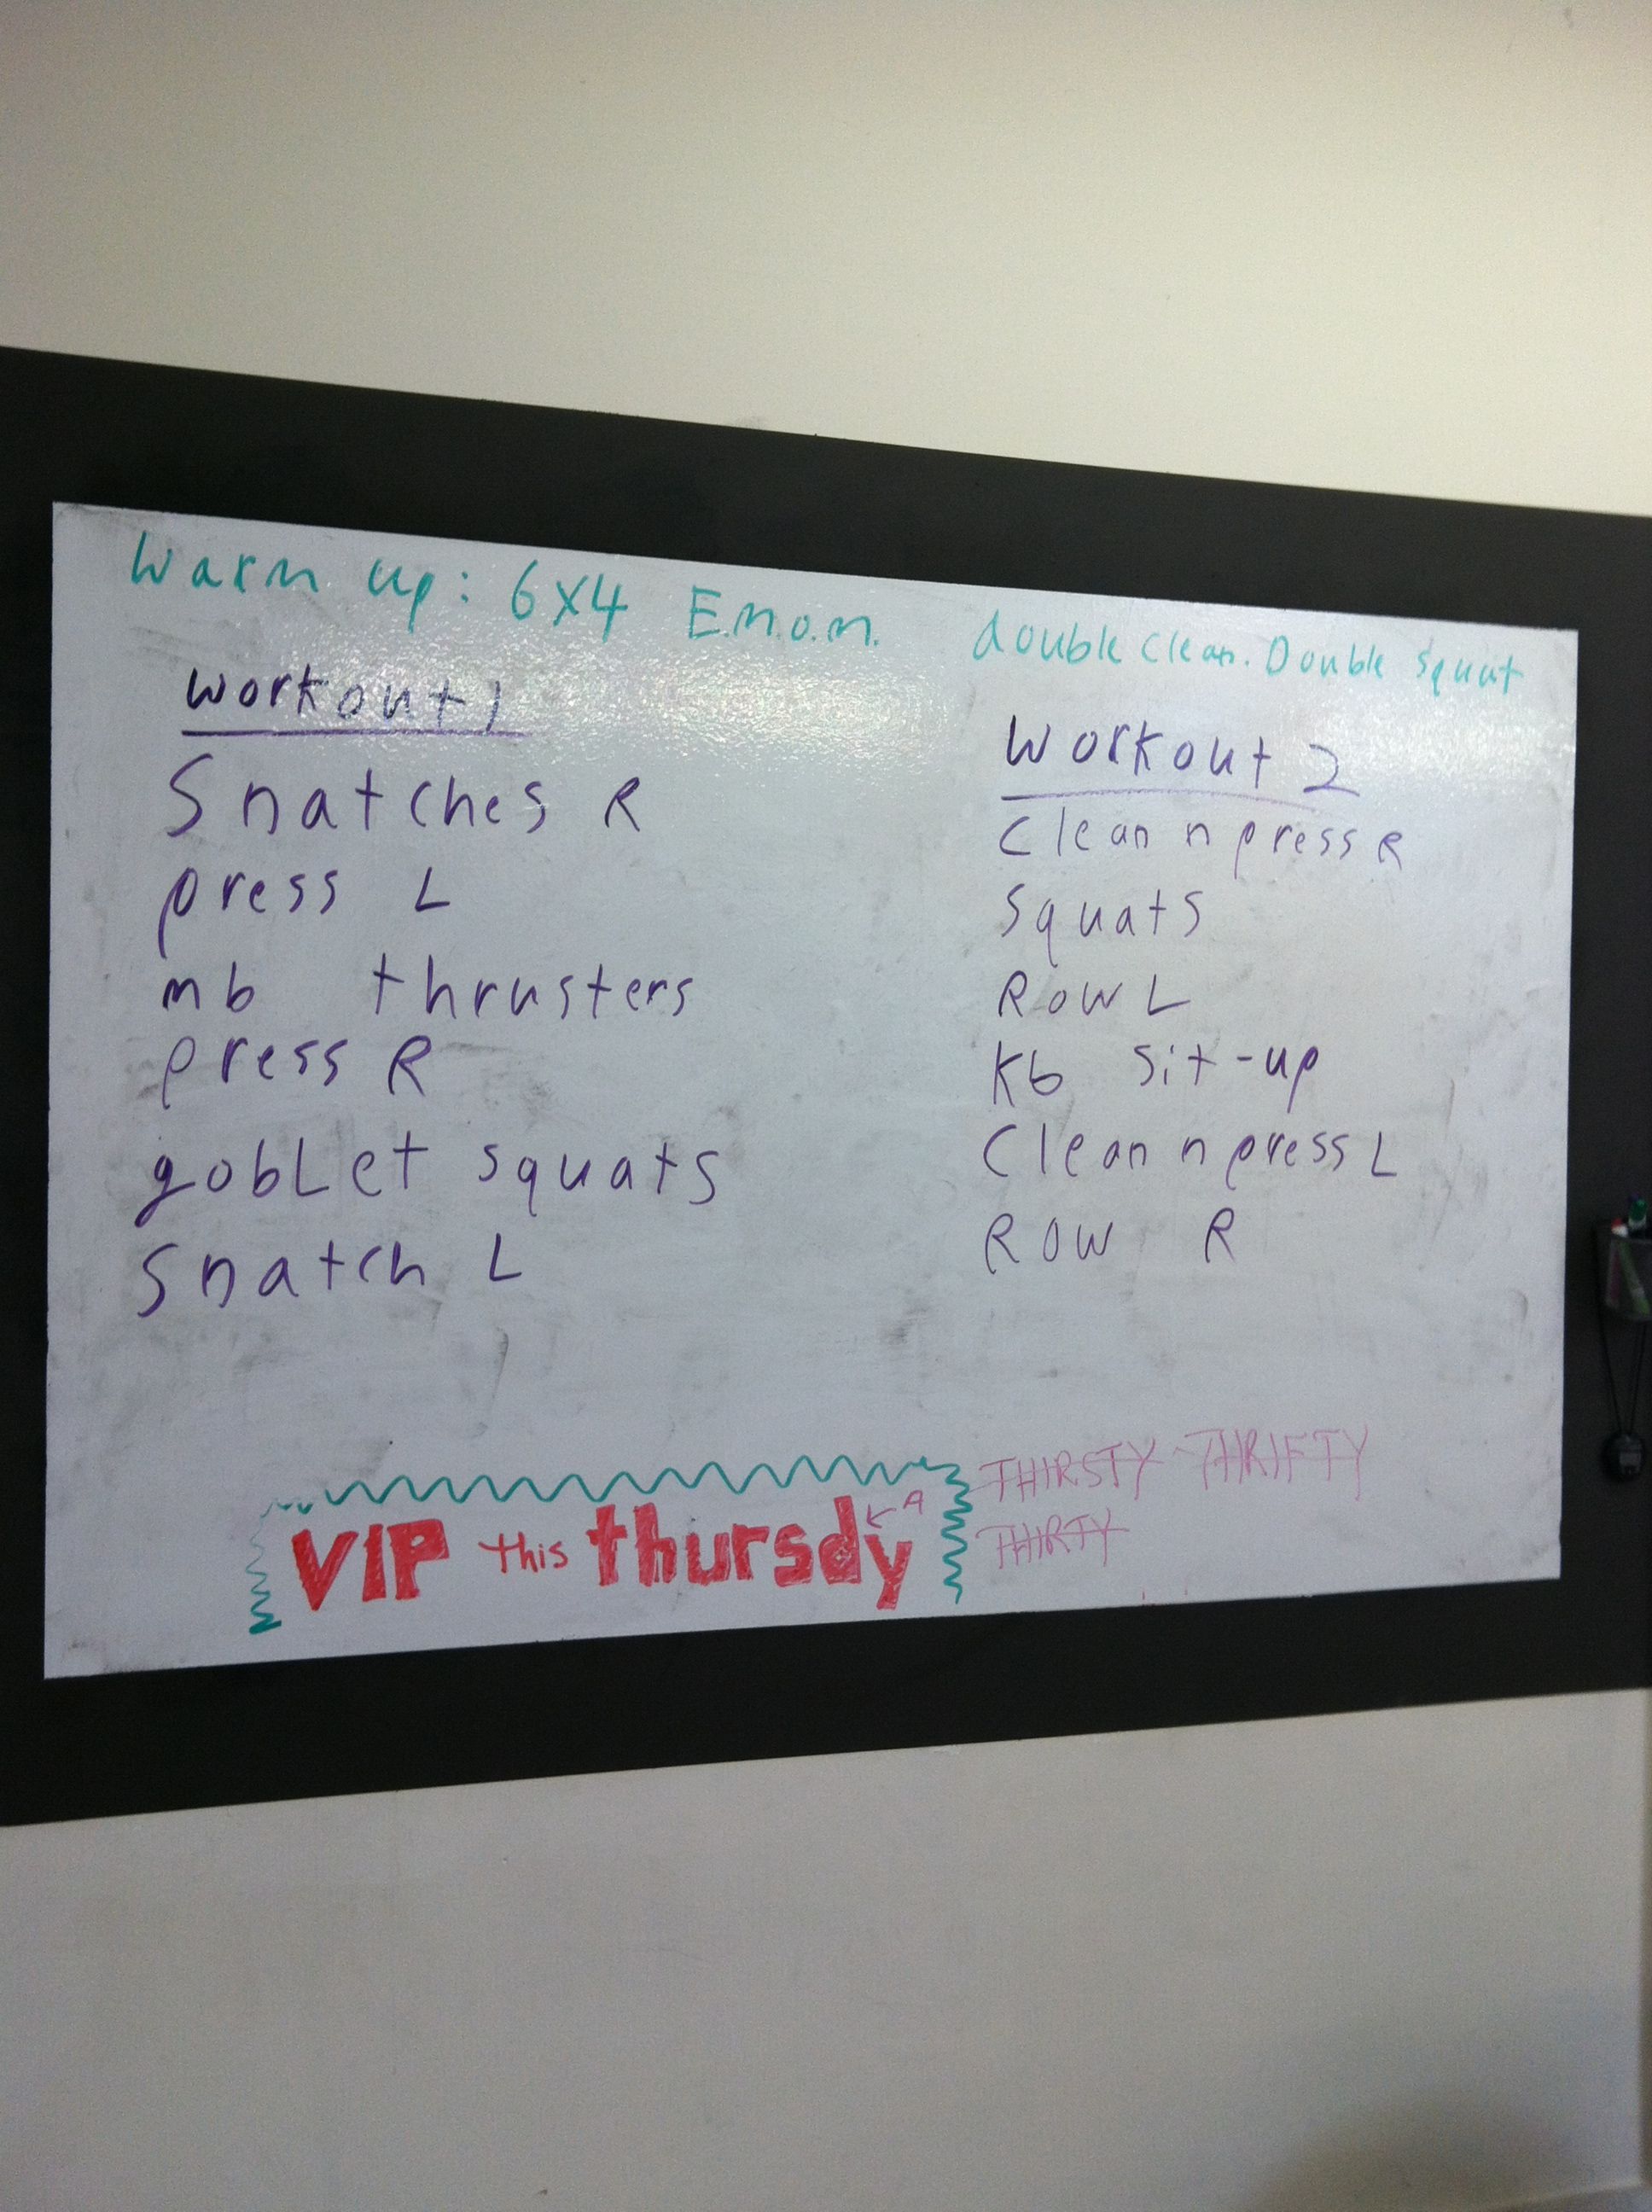 Warm up: 6x4 E.m.o.m. double clean. Double squat
Workout 1
Snatches R
press L
mb thrusters
press R
gobLet squats
Snatch L
Workout 2
Clean n press R
Squats
Row L
Kb sit-up
Clean n press L
Row R
VIP this thursdy
A
THIRSTY THRIFTY
THIRTY